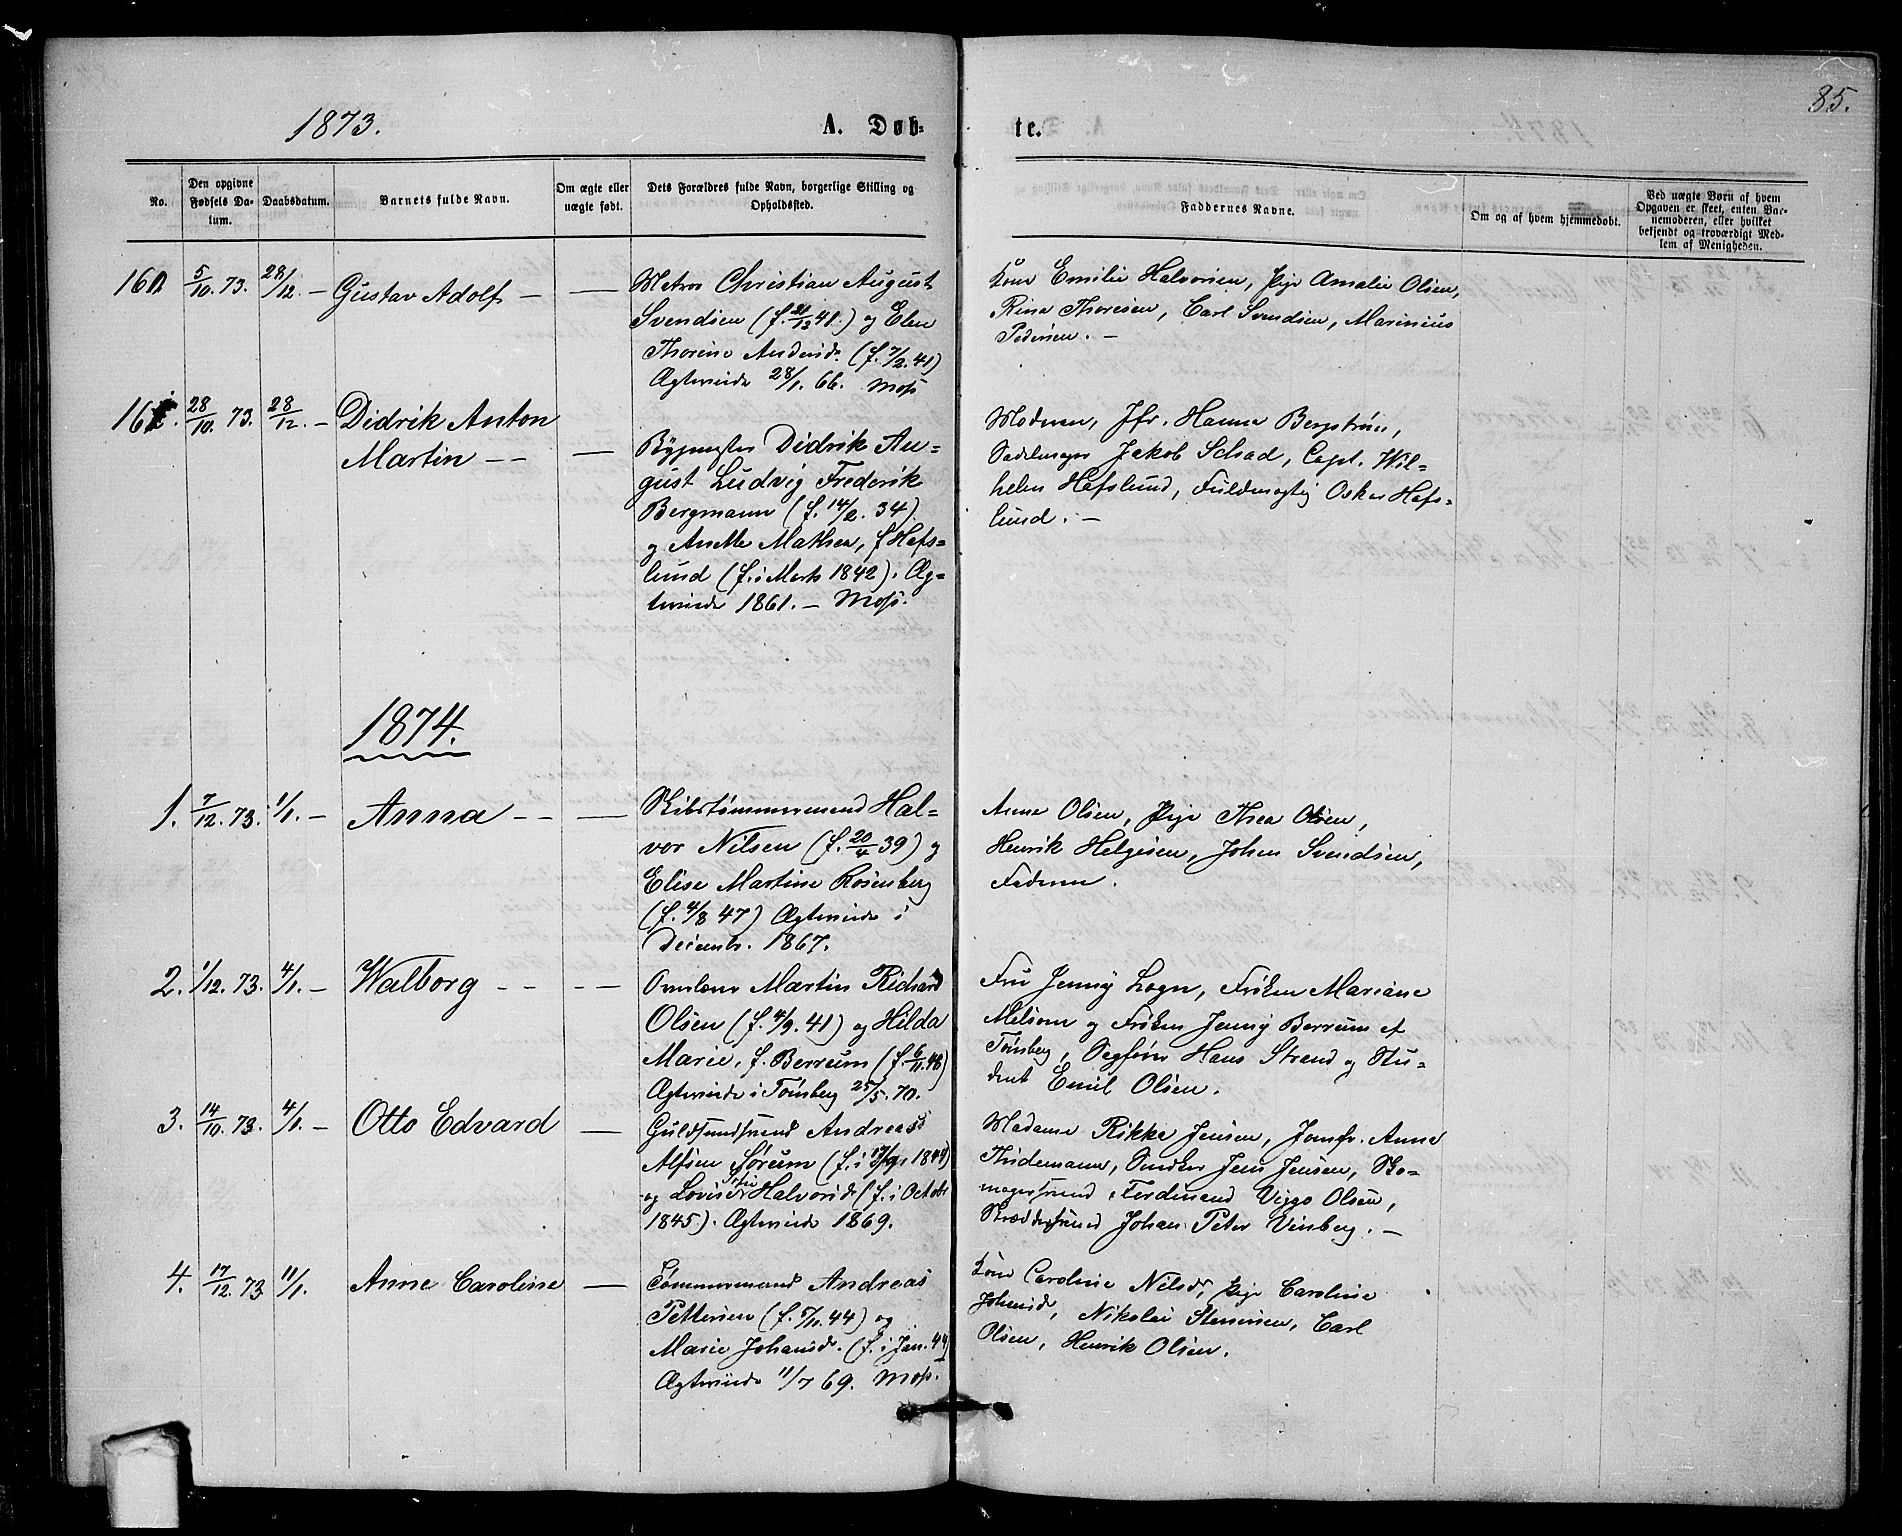 85.
1873.
A. Døb-
te.
No.
Den opgivne Fødsels Da-
tum.
Daabsdatum.
Barnets fulde Navn.
Om ægte eller
uægte født.
Dets Forældres fulde Navn, borgerlige Stilling og
Opholdssted.
Faddernes Navne.
Om og af hvem hjemmedøbt.
Ved uægte Børn af hvem
Opgaven er skeet, enten Bar-
nemoderen, eller hvilket
bekjendt og troværdigt Med-
lem af Menigheden.
160 5/10. 73. 28/12. – Gustav Adolf – –
Matros Christian August
Svendsen (f. 21/12 41.) og Elen
Thorine Andersd. (f. 7/2. 41)
Ægteviede 28/1. 66. Moss
Kone Emilie Halvorsen, Pige Amalie Olsen,
Rina Thoresen, Carl Svendsen, Marinius
Pedersen. –
161. 28/10. 73. 28/12. – Didrik Anton
Martin – – –
Bygmester Didrik Au-
gust Ludvig Frederik
Bergmann (f. 14/2. 34)
og Anette Mathea, f. Hafs-
lund (f. i Marts 1842). Æg-
teviede 1861. – Moss.
Moderen, Jfr. Hanna Bergstrøm,
Sadelmager Jakob Schad, Capt. Wil-
helm Hafslund, Fuldmægtig Oskar Hafs-
lund. –
1874.
1. 7/12. 73. 1/1. – Anna – – –
Skibstømmermand Hal-
vor Nilsen (f. 20/4 39) og
Elise Martine Rosenberg
(f. 4/8 47) Ægteviede i
Decembr. 1867.
Anne Olsen, Pige Thea Olsen,
Henrik Helgesen, Johan Svendsen,
Faderen.
2. 1/12. 73. 4/1. – Walborg – – – –
Overlærer Martin Richard
Olsen (f. 4/9. 41) og Hilda
Marie, f. Berrum (f. 6/11. 46)
Ægteviede i Tønsberg 25/5. 70.
Fru Jenny Logn, Frøken Mariane
Melsom og Frøken Jenny Berrum af
Tønsberg, Sagfører Hans Strand og Stu-
dent Emil Olsen.
3. 14/10. 73. 4/1. – Otto Edvard –
Guldsmedsvend Andreas
Alfsen Sørum (f. i 17/9. 1844)
og Lovise Halvorsd. (f. i Octobr
1845). Ægteviede 1869.
Madame Rikke Jensen, Jomfr. Anne
Thidemann, Snedker Jens Jensen, Sko-
magersvend Ferdinand Viggo Olsen,
Skræddersvend Johan Peter Vinberg. –
4. 17/12. 73 11/1. Anne Caroline –
Tømmermand Andreas
Pettersen (f. 5/11. 44) og
Marie Johansd. (f. i Jan. 44)
Ægteviede 11/7 69. Moss.
Kone Caroline Nilsd, Pige Caroline
Johansd, Nikolai Stensisen, Carl
Olsen, Henrik Olsen.